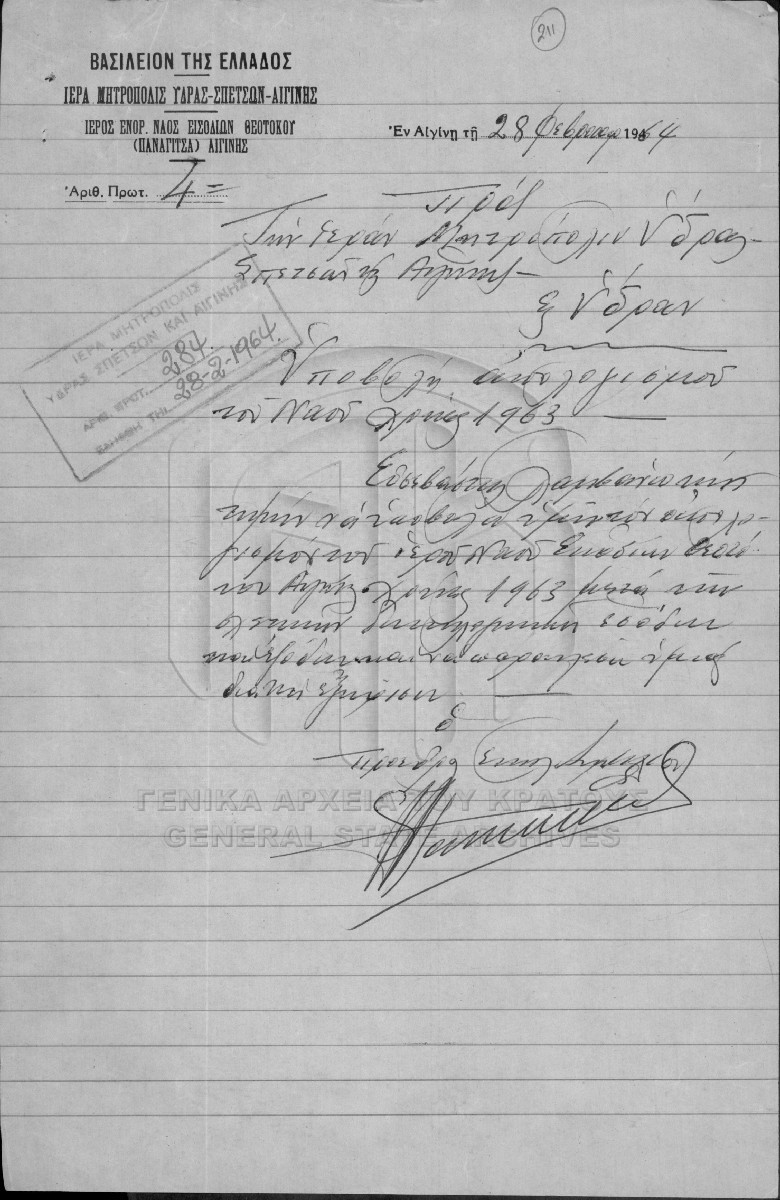 211
ΒΑΣΙΛΕΙΟΝ ΤΗΣ ΕΛΛΑΔΟΣ
ΙΕΡΑ ΜΗΤΡΟΠΟΛΙΣ ΥΔΡΑΣ-ΣΠΕΤΣΩΝ-ΑΙΓΙΝΗΣ
ΙΕΡΟΣ ΕΝΟΡ. ΝΑΟΣ ΕΙΣΟΔΙΩΝ ΘΕΟΤΟΚΟΥ
(ΠΑΝΑΓΙΤΣΑ) ΑΙΓΙΝΗΣ
Ἐν Αἰγίνῃ τῇ 28 Φεβρουαρ 1964
Ἀριθ. Πρωτ. 7=
Πρός
Τήν Ἱεράν Μητρόπολιν Ὕδρας
Σπετσῶν Αἰγίνης
Ὕδραν
ΙΕΡΑ ΜΗΤΡΟΠΟΛΙΣ
ΥΔΡΑΣ ΣΠΕΤΣΩΝ ΚΑΙ ΑΙΓΙΝΗΣ
ΑΡΙΘ. ΠΡΩΤ. 284.
ΕΛΗΦΘΗ ΤΗΙ 28-2-1964.
Ὑποβολή ἀπολογισμοῦ
τοῦ Ναοῦ χρήσ 1963
Εὐσεβάστως λαμβάνω τήν
τιμήν νά ὑποβάλω ὑμῖν τόν ἀπολο-
γισμόν τοῦ Ἱεροῦ Ναοῦ Εἰσοδίων Θεοτό
κου Αἰγίνης χρήσεως 1963 μετά τῶν
σχετικῶν δικαιολογητικῶν ἐσόδων
καί ἐξόδων καί νά παρακαλέσω ὑμᾶς
διά τήν ἔγκρισιν
Ὁ
Πρόεδρος Ἐκκλ Συμβουλίου
ΓΕΝΙΚΑ ΑΡΧΕΙΑ ΤΟΥ ΚΡΑΤΟΥΣ
GENERAL STATE ARCHIVES